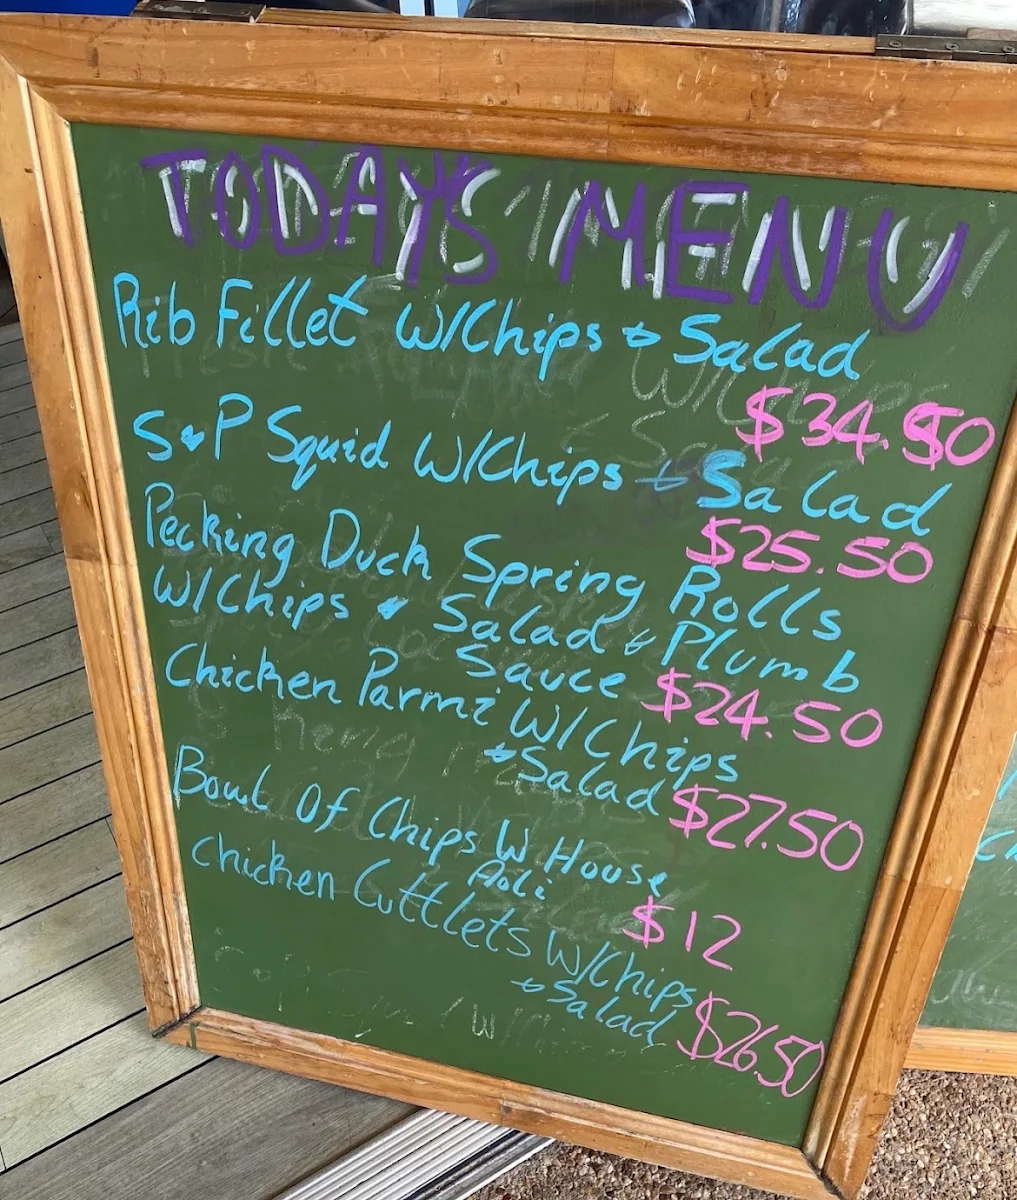 TODAY'S MENU
Rib Fillet W/Chips & Salad
$34.50
S & P Squid W/Chips & Salad
$25.50
Pecking Duck Spring Rolls
W/Chips & Salad & Plumb
Sauce $24.50
Chicken Parmi W/Chips
& Salad $27.50
Bowl Of Chips W House
Aoli
$12
Chicken Cuttlets W/Chips
& Salad $26.50